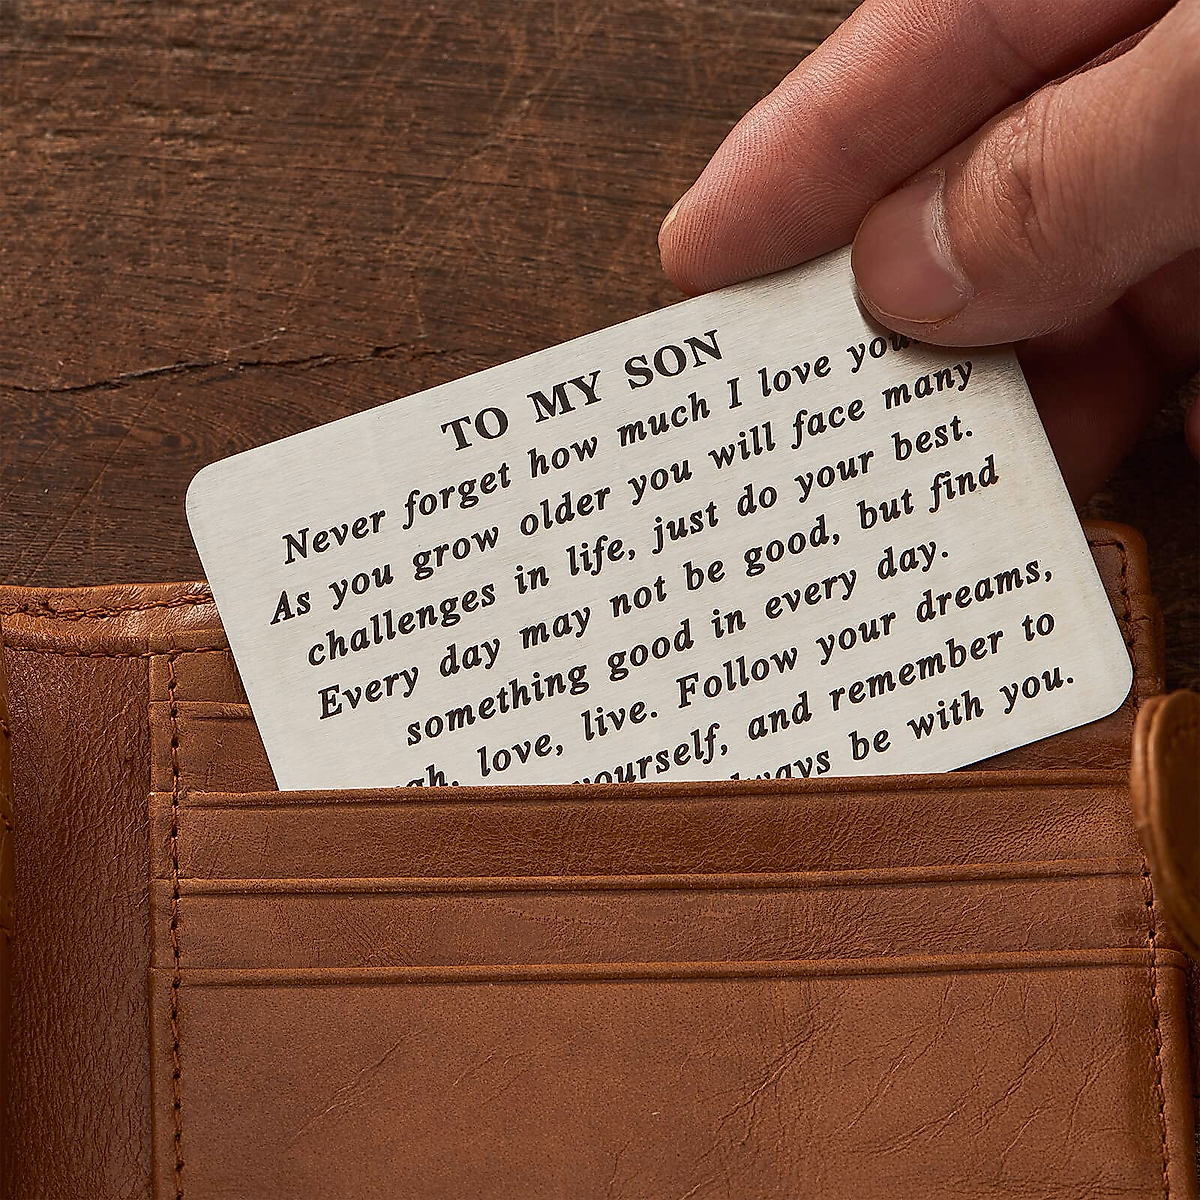 TO MY SON
Never forget how much I love you
As you grow older you will face many
challenges in life, just do your best.
Every day may not be good, but find
something good in every day.
love, live. Follow your dreams,
yourself, and remember to
be with you.